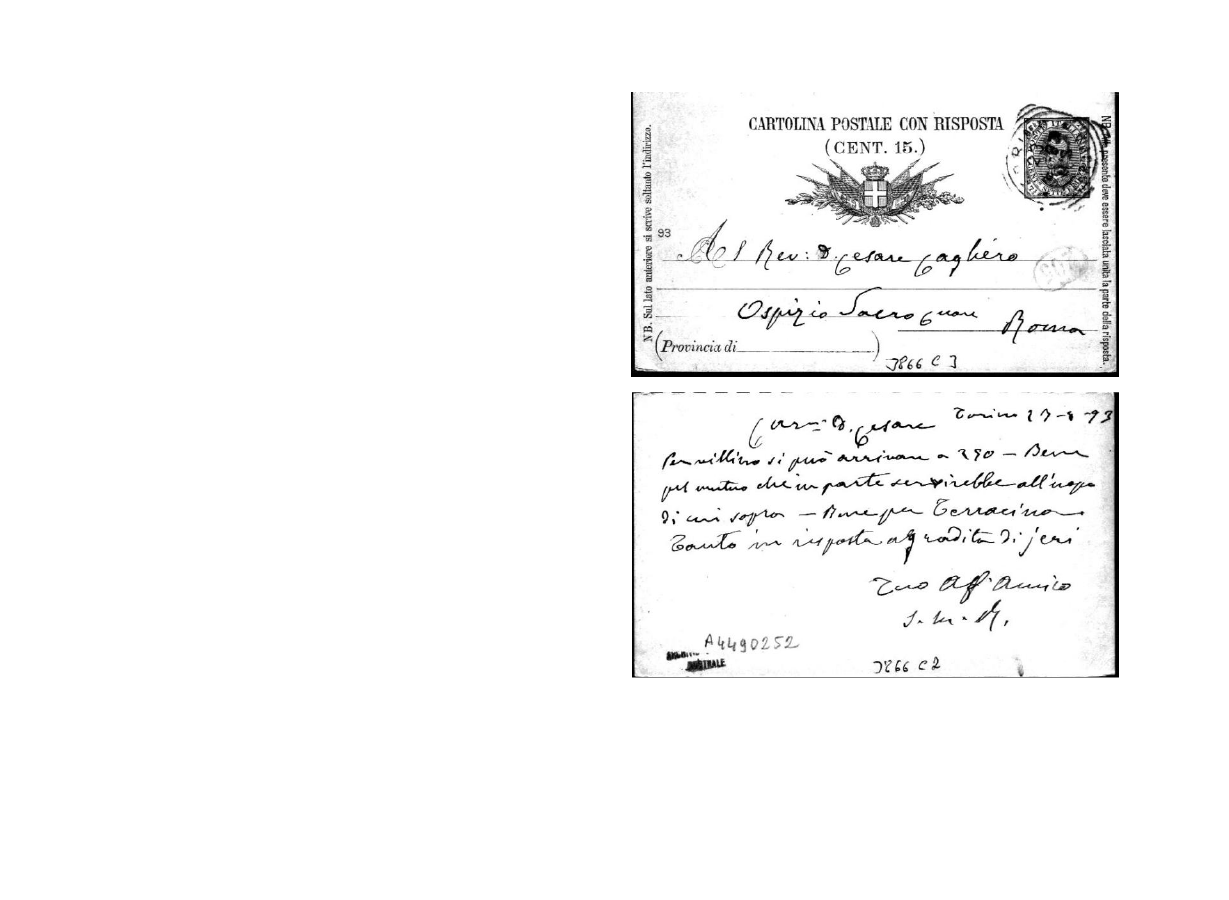 CARTOLINA POSTALE CON RISPOSTA
(CENT. 15.)
NB. Sul lato anteriore si scrive soltanto l'indirizzo.
NB. presente deve essere lasciata unita la parte della risposta.
93
Al Rev: D. Cesare Cagliero
Ospizio Sacro Cuore
Roma
(Provincia di )
3866 C 3
Car D. Cesare Torino 93
Per villino si può arrivare a 290 — Bene
pel mutuo che in parte servirebbe all'uopo
di cui sopra — Bene per Terracina
Tanto in risposta a gradita di jeri
Tuo Aff Amico
A4490252
3866 C 2